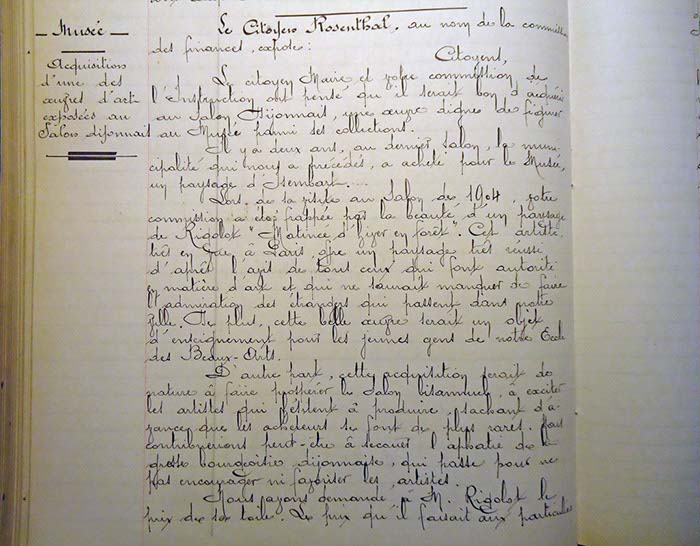 Musée
Acquisition
d'une des
œuvres d'art
exposées au
Salon dijonnais
Le Citoyen Rosenthal, au nom de la commission
des finances, expose :
Citoyens,
Le citoyen Maire et votre commission de
l'Instruction ont pensé qu'il serait bon d'acquérir
au Salon Dijonnais, une œuvre digne de figurer
au Musée parmi ses collections.
Il y a deux ans, au dernier Salon, la muni-
cipalité qui nous a précédés, a acheté pour le Musée,
un paysage d'Isembart.
Lors de sa visite au Salon de 1904, votre
commission a été frappée par la beauté d'un paysage
de Rigolot "Matinée d'hiver en forêt". Cet artiste,
très en vue à Paris, offre un paysage très réussi
d'après l'avis de tous ceux qui font autorité
en matière d'art et qui ne saurait manquer de faire
l'admiration des étrangers qui passent dans notre
ville. De plus, cette belle œuvre serait un objet
d'enseignement pour les jeunes gens de notre Ecole
des Beaux-Arts.
D'autre part, cette acquisition serait de
nature à faire prospérer le Salon bisannuel, à exciter
les artistes qui hésitent à produire, sachant d'a-
vance que les acheteurs se font de plus rares. Nous
contribuerions peut-être à secouer l'apathie de la
grosse bourgeoisie dijonnaise, qui passe pour ne
pas encourager ni favoriser les artistes.
Nous avons demandé à M. Rigolot le
prix de sa toile. Le prix qu'il faisait aux particuliers